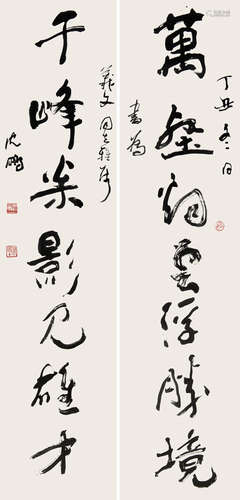 丁丑冬日
萬壑烟雲浮勝境
書為
義文同志雅屬
千峰影見雄才
沈鹏